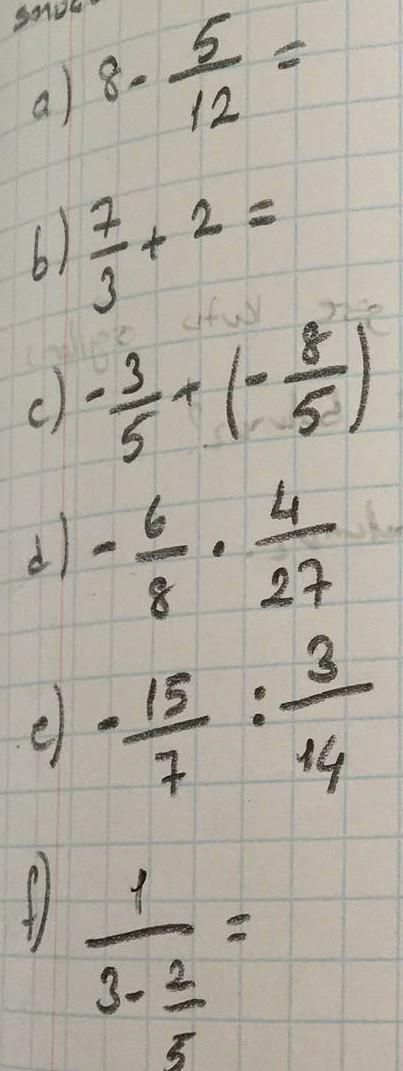 a) 8 - 5/12 =
b) 7/3 + 2 =
c) - 3/5 + (- 8/5)
d) - 6/8 . 4/27
e) - 15/7 : 3/14
f) 1/(3 - 2/5) =